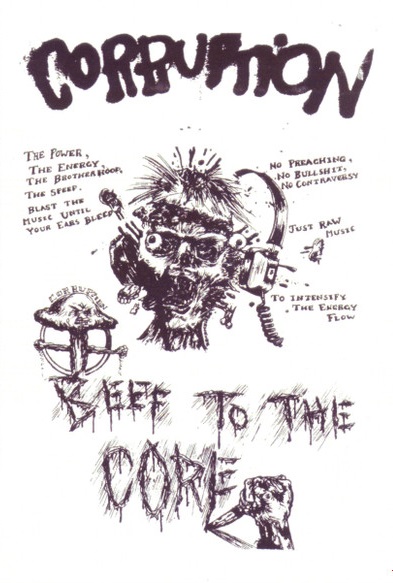 CORRUPTION
THE POWER,
THE ENERGY,
THE BROTHERHOOD,
THE SPEED.
BLAST THE
MUSIC UNTIL
YOUR EARS BLEED
NO PREACHING,
NO BULLSHIT,
NO CONTRAVERSY
JUST RAW
MUSIC
TO INTENSIFY
THE ENERGY
FLOW
CORRUPTION
BEEF TO THE
CORE